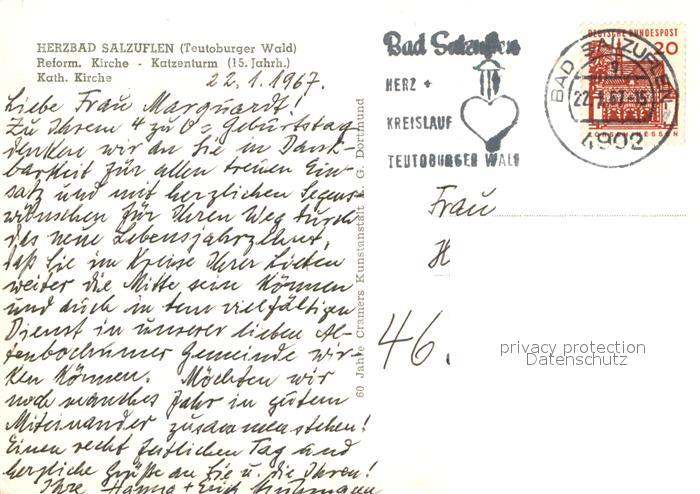 HERZBAD SALZUFLEN (Teutoburger Wald)
Reform. Kirche - Katzenturm (15. Jahrh.)
Kath. Kirche
22.1.1967.
Liebe Frau Marquardt!
Zu Ihrem 4 zu 0 = Geburtstag
denken wir an Sie in Dank-
barkeit für allen treuen Ein-
satz und mit herzlichen Segens-
wünschen für Ihren Weg durch
das neue Lebensjahrzehnt,
daß Sie im Kreise Ihrer Lieben
weiter die Mitte sein können
und auch in dem vielfältigen
Dienst in unserer lieben Al-
tenbochumer Gemeinde wir-
ken können. Möchten wir
noch manches Jahr in gutem
Miteinander zusammenstehen!
Einen recht festlichen Tag und
herzliche Grüße an Sie u. die Ihren!
Ihre Hanna + Erich
60 Jahre Cramers Kunstanstalt K. G. Dortmund
Bad Salzuflen
HERZ +
KREISLAUF
TEUTOBURGER WALD
DEUTSCHE BUNDESPOST
20
LORSCH/HESSEN
BAD SALZUFLEN
22.1.67-15
4902
Frau
H
46.
privacy protection
Datenschutz